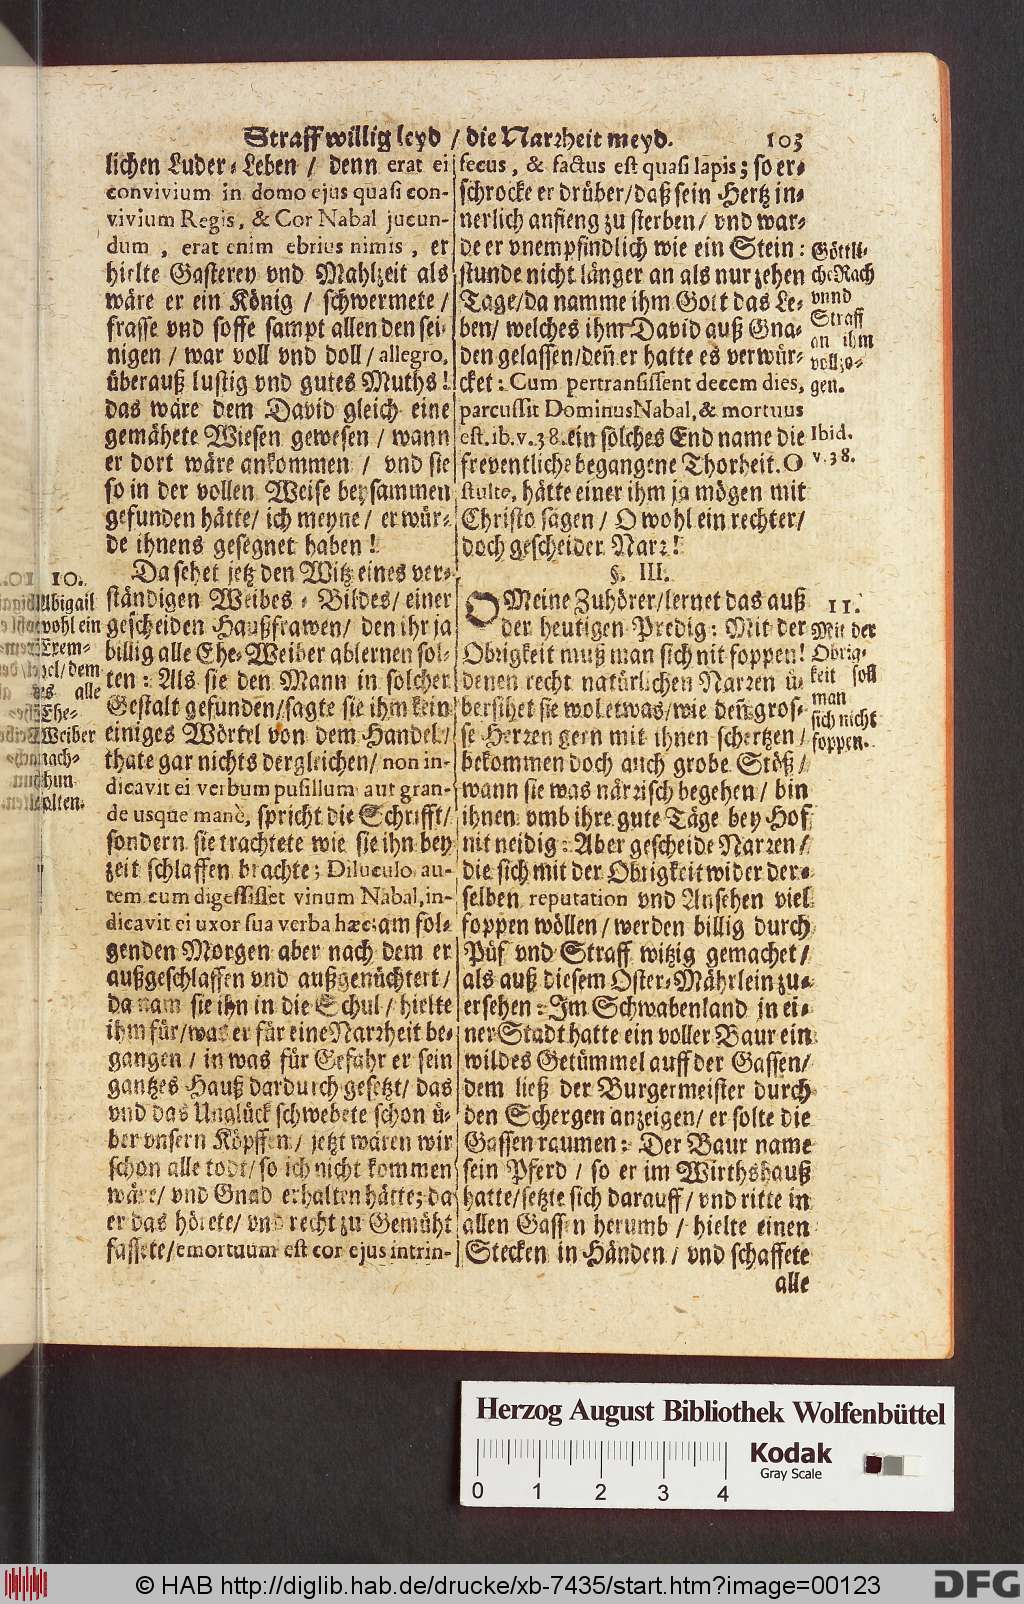 Straff willig leyd / die Narrheit meyd. 103
lichen Luder-Leben / denn erat ei
convivium in domo ejus quasi con-
vivium Regis, & Cor Nabal jucun-
dum, erat enim ebrius nimis, er
hielte Gasterey vnd Mahlzeit als
wäre er ein König / schwermete /
frasse vnd soffe sampt allen den sei-
nigen / war voll vnd doll / allegro,
überauß lustig vnd gutes Muths!
das wäre dem David gleich eine
gemähete Wiesen gewesen / wann
er dort wäre ankommen / vnd sie
so in der vollen Weise beysammen
gefunden hätte / ich meyne / er wür-
de ihnens gesegnet haben!
10.
Abigail
wohl ein
Exem-
pel / dem
es alle
Ehe-
Weiber
nach-
thun
solten.
Da sehet jetz den Witz eines ver-
ständigen Weibes-Bildes / einer
gescheiden Haußfrawen / den ihr ja
billig alle Ehe-Weiber ablernen sol-
ten: Als sie den Mann in solcher
Gestalt gefunden / sagte sie ihm kein
einiges Wörtel von dem Handel /
thate gar nichts dergleichen / non in-
dicavit ei verbum pusillum aut gran-
de usque manè, spricht die Schrifft /
sondern sie trachtete wie sie ihn bey
zeit schlaffen brachte; Diluculo au-
tem cum digessisset vinum Nabal, in-
dicavit ei uxor sua verba hæc: am fol-
genden Morgen aber nach dem er
außgeschlaffen vnd außgenüchtert /
da nam sie ihn in die Schul / hielte
ihm für / was er für eine Narrheit be-
gangen / in was für Gefahr er sein
gantzes Hauß dardurch gesetzt / das
vnd das Unglück schwebete schon ü-
ber vnsern Köpffen / jetzt wären wir
schon alle todt / so ich nicht kommen
wäre / vnd Gnad erhalten hätte; da
er das hörete / vnd recht zu Gemüht
fassete / emortuum est cor ejus intrin-
secus, & factus est quasi lapis; so er-
schrocke er drüber / daß sein Hertz in-
nerlich anfieng zu sterben / vnd war-
de er vnempfindlich wie ein Stein:
stunde nicht länger an als nur zehen
Tage / da namme ihm Gott das Le-
ben / welches ihm David auß Gna-
den gelassen / deñ er hatte es verwür-
cket: Cum pertransissent decem dies,
parcussit Dominus Nabal, & mortuus
est. ib. v. 38. ein solches End name die
freventliche begangene Thorheit. O
stulte, hätte einer ihm ja mögen mit
Christo sagen / O wohl ein rechter /
doch gescheider Narr!
Göttli-
che Rach
vnnd
Straff
an ihm
vollzo-
gen.
Ibid.
v. 38.
§. III.
O Meine Zuhörer / lernet das auß
der heutigen Predig: Mit der
Obrigkeit muß man sich nit foppen!
denen recht natürlichen Narren ü-
bersihet sie wol etwas / wie deñ gros-
se Herren gern mit ihnen schertzen /
bekommen doch auch grobe Stöß /
wann sie was närrisch begehen / bin
ihnen vmb ihre gute Täge bey Hof
nit neidig: Aber gescheide Narren /
die sich mit der Obrigkeit wider der-
selben reputation vnd Ansehen viel
foppen wöllen / werden billig durch
Püf vnd Straff witzig gemachet /
als auß diesem Oster-Mährlein zu-
ersehen: Im Schwabenland in ei-
ner Stadt hatte ein voller Baur ein
wildes Getümmel auff der Gassen /
dem ließ der Burgermeister durch
den Schergen anzeigen / er solte die
Gassen raumen: Der Baur name
sein Pferd / so er im Wirthshauß
hatte / setzte sich darauff / vnd ritte in
allen Gassen herumb / hielte einen
Stecken in Händen / vnd schaffete
alle
11.
Mit der
Obrig-
keit soll
man
sich nicht
foppen.
Herzog August Bibliothek Wolfenbüttel
0 1 2 3 4
Kodak
Gray Scale
© HAB http://diglib.hab.de/drucke/xb-7435/start.htm?image=00123
DFG